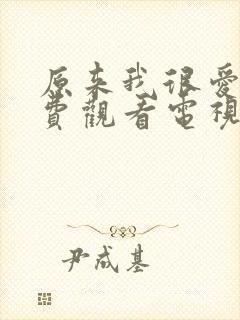 原来我很爱
費觀看電視
尹成基